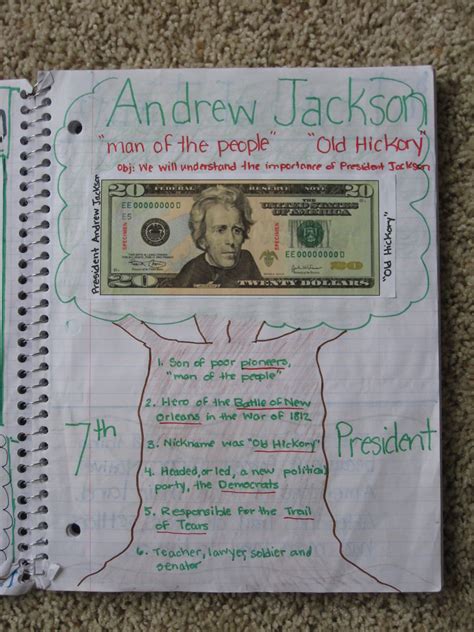 Andrew Jackson
"man of the people" "Old Hickory"
Obj: We will understand the importance of President Jackson
President Andrew Jackson
20 FEDERAL RESERVE NOTE 20
THE UNITED STATES
OF AMERICA
EE 00000000 D
E5
SPECIMEN
SPECIMEN
EE 00000000 D
20
20 TWENTY DOLLARS 20
"Old Hickory"
1. Son of poor pioneers,
"man of the people"
2. Hero of the Battle of New
Orleans in the War of 1812
3. Nickname was "Old Hickory"
7th President
4. Headed, or led, a new political
party, the Democrats
5. Responsible for the Trail
of Tears
6. Teacher, lawyer, soldier and
senator